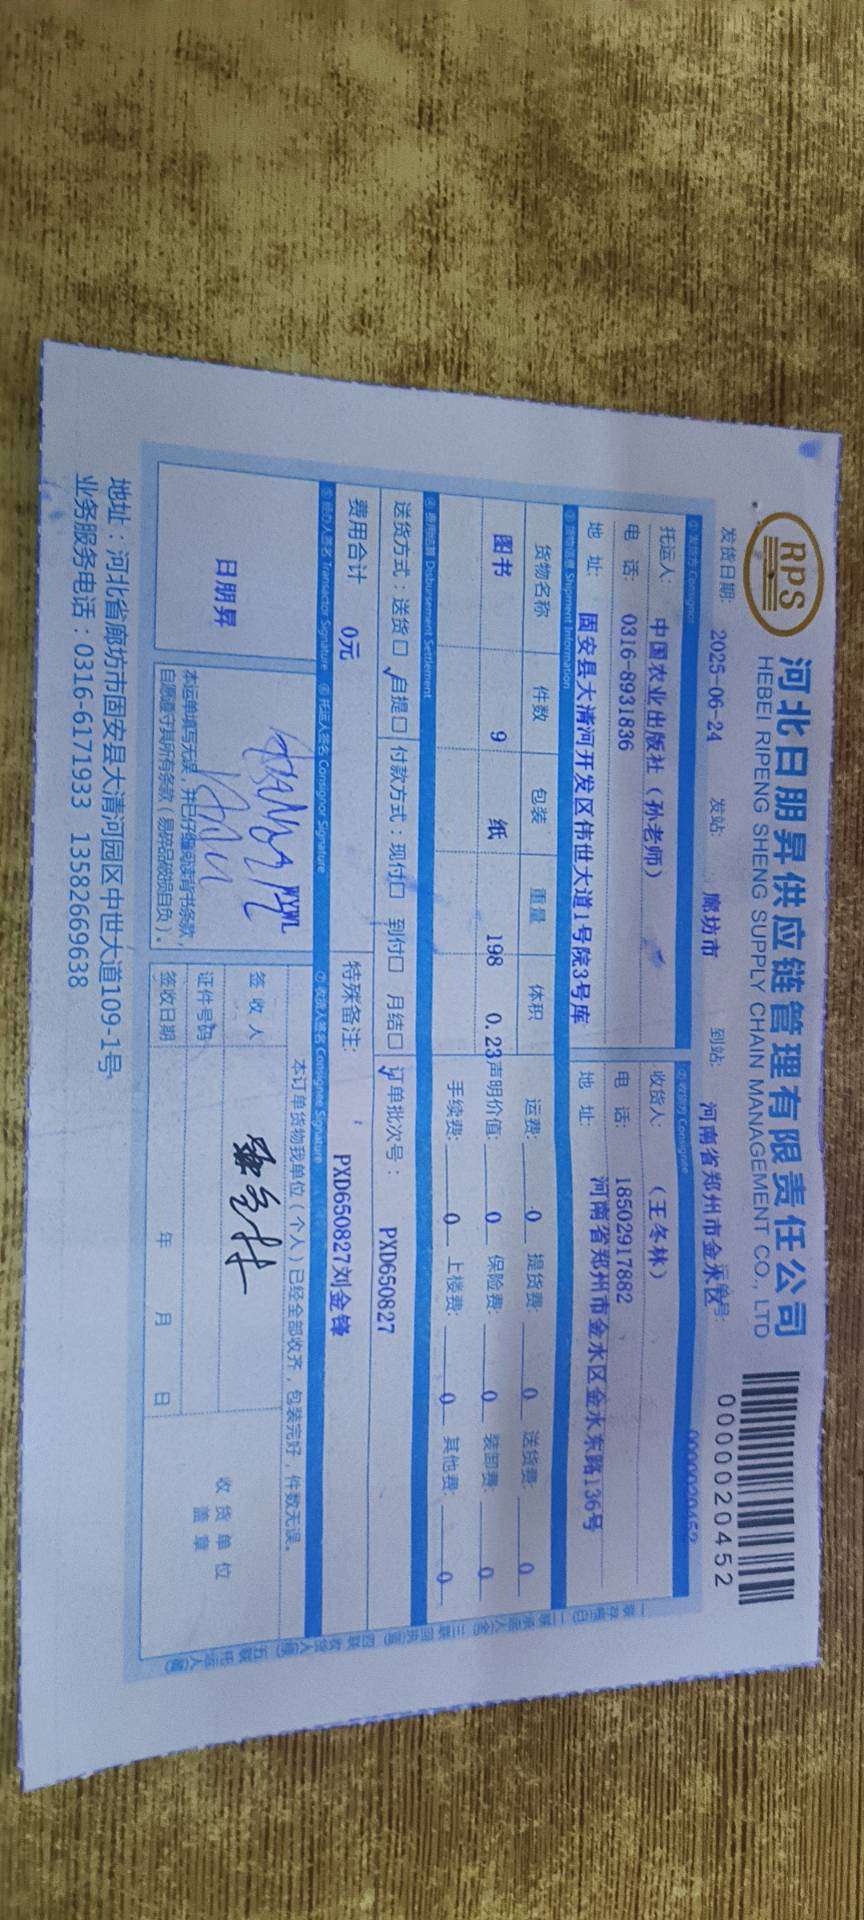 RPS
河北日朋昇供应链管理有限责任公司
HEBEI RIPENG SHENG SUPPLY CHAIN MANAGEMENT CO., LTD
0000020452
发货日期: 2025-06-24 发站: 廊坊市 到站: 河南省郑州市金水区
0000020452
①发货方 Consignor ②收货方 Consignee
托运人: 中国农业出版社（孙老师） 收货人: （王冬林）
电 话: 0316-8931836 电 话: 18502917882
地 址: 固安县大清河开发区伟世大道1号院3号库 地 址: 河南省郑州市金水区金水东路136号
③货物信息 Shipment Information
货物名称 件数 包装 重量 体积 运费: 0 提货费: 0 送货费: 0
图书 9 纸 198 0.23 声明价值: 0 保险费: 0 装卸费: 0
手续费: 0 上楼费: 0 其他费: 0
④费用结算 Disbursement Settlement
送货方式：送货□ 自提□ 付款方式：现付□ 到付□ 月结□ 订单批次号： PXD650827
费用合计 0元 特殊备注: PXD650827刘金锋
⑤经办人签名 Transactor Signature ⑥托运人签名 Consignor Signature ⑦收货人签名 Consignee Signature
日朋昇
WYWL
本运单填写无误，并已仔细阅读背书条款，
自愿遵守其所有条款（易碎品破损自负）。
本订单货物我单位（个人）已经全部收齐，包装完好，件数无误。
签 收 人
证件号码
签收日期 年 月 日
收 货 单 位
盖 章
地址：河北省廊坊市固安县大清河园区中世大道109-1号
业务服务电话：0316-6171933 13582669638